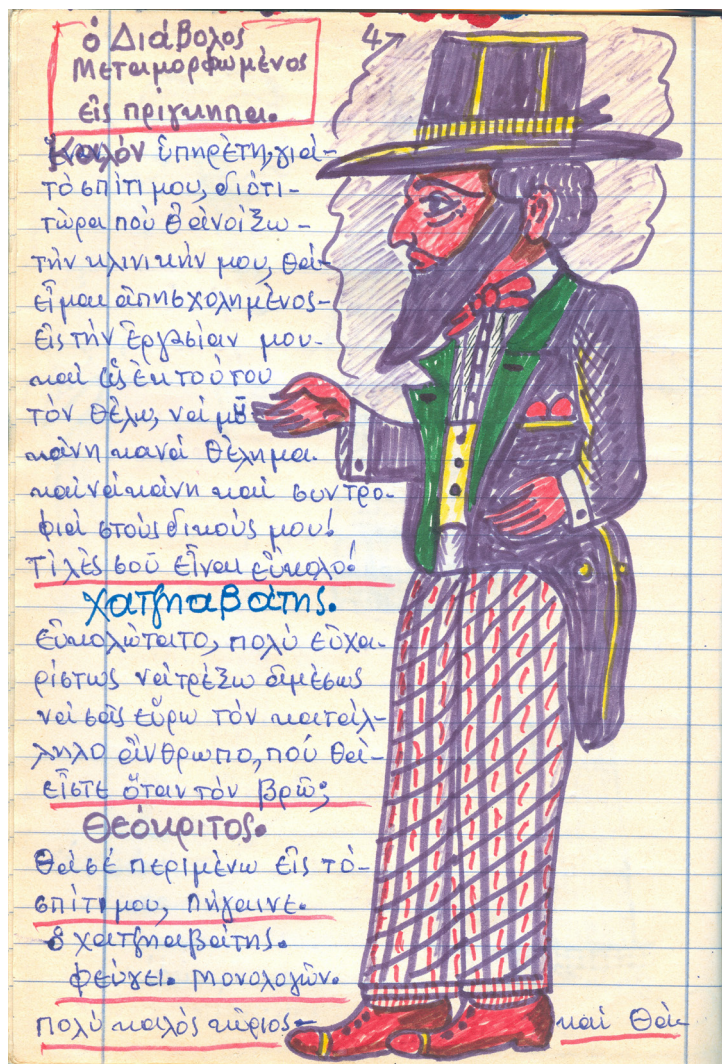 ὁ Διάβολος
Μεταμορφωμένος
εἰς πρίγκηπα.
4
Καλόν ὑπηρέτη, γιά-
τό σπίτι μου, διότι-
τώρα πού θ' ἀνοίξω-
τήν κλινικήν μου, θά-
εἶμαι ἀπησχολημένος-
εἰς τήν ἐργασίαν μου-
καί ὡς ἐκ τούτου
τόν θέλω, νά μοῦ
κάνη κανά θέλημα.
καί νά κάνη καί συντρο-
φιά στούς δικούς μου!
Τί λές σοῦ εἶναι εὔκολο!
Χατζηαβάτης.
εὐκολώτατο, πολύ εὐχα-
ρίστως νά τρέξω ἀμέσως
νά σᾶς εὕρω τόν κατάλ-
ληλο ἄνθρωπο, πού θά-
εἶστε ὅταν τόν βρῶ;
Θεόκριτος.
Θά σέ περιμένω εἰς τό-
σπίτι μου, πήγαινε.
ὁ χατζηαβάτης.
φεύγει. Μονολογῶν.
πολύ καλός κύριος- καί θά-